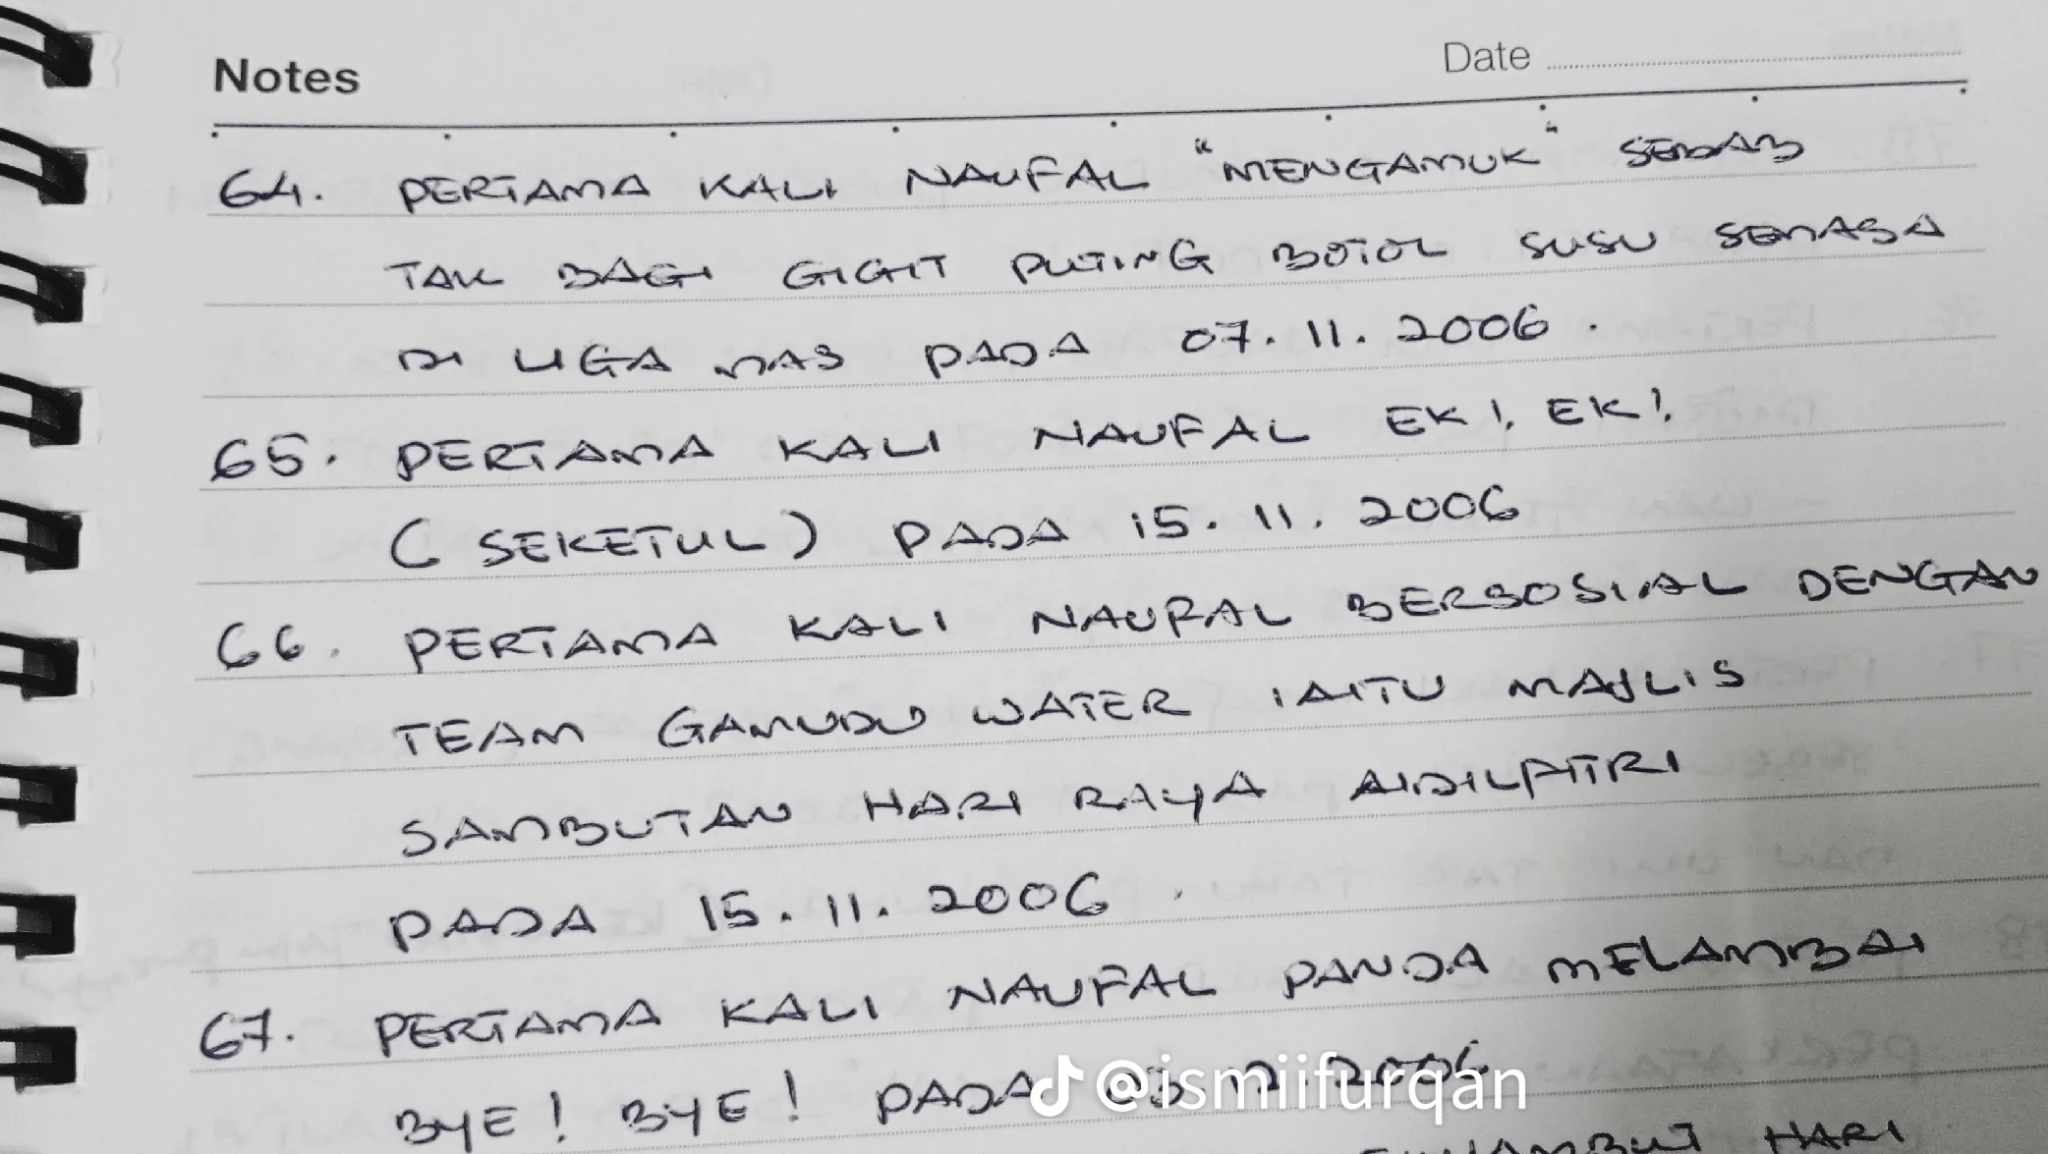 Notes
Date
64. PERTAMA KALI NAUFAL "MENGAMUK" SEBAB
TAK BAGI GIGIT PUTING BOTOL SUSU SEMASA
DI LIGA MAS PADA 07.11.2006.
65. PERTAMA KALI NAUFAL EK!, EK!,
(SEKETUL) PADA 15.11.2006
66. PERTAMA KALI NAUFAL BERSOSIAL DENGAN
TEAM GAMUDU WATER IAITU MAJLIS
SAMBUTAN HARI RAYA AIDILFITRI
PADA 15.11.2006.
67. PERTAMA KALI NAUFAL PANDA MELAMBAI
BYE! BYE! PADA 12.2006
@ismiifurqan
HARI